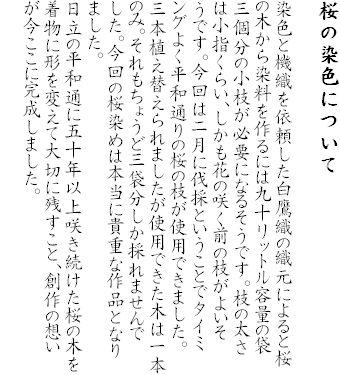 桜の染色について
染色と機織を依頼した白鷹織の織元によると桜
の木から染料を作るには九十リットル容量の袋
三個分の小枝が必要になるそうです。枝の太さ
は小指くらい、しかも花の咲く前の枝がよいそ
うです。今回は二月に伐採ということでタイミ
ングよく平和通りの桜の枝が使用できました。
三本植え替えられましたが使用できた木は一本
のみ。それもちょうど三袋分しか採れませんで
した。今回の桜染めは本当に貴重な作品となり
ました。
日立の平和通に五十年以上咲き続けた桜の木を
着物に形を変えて大切に残すこと、創作の想い
が今ここに完成しました。